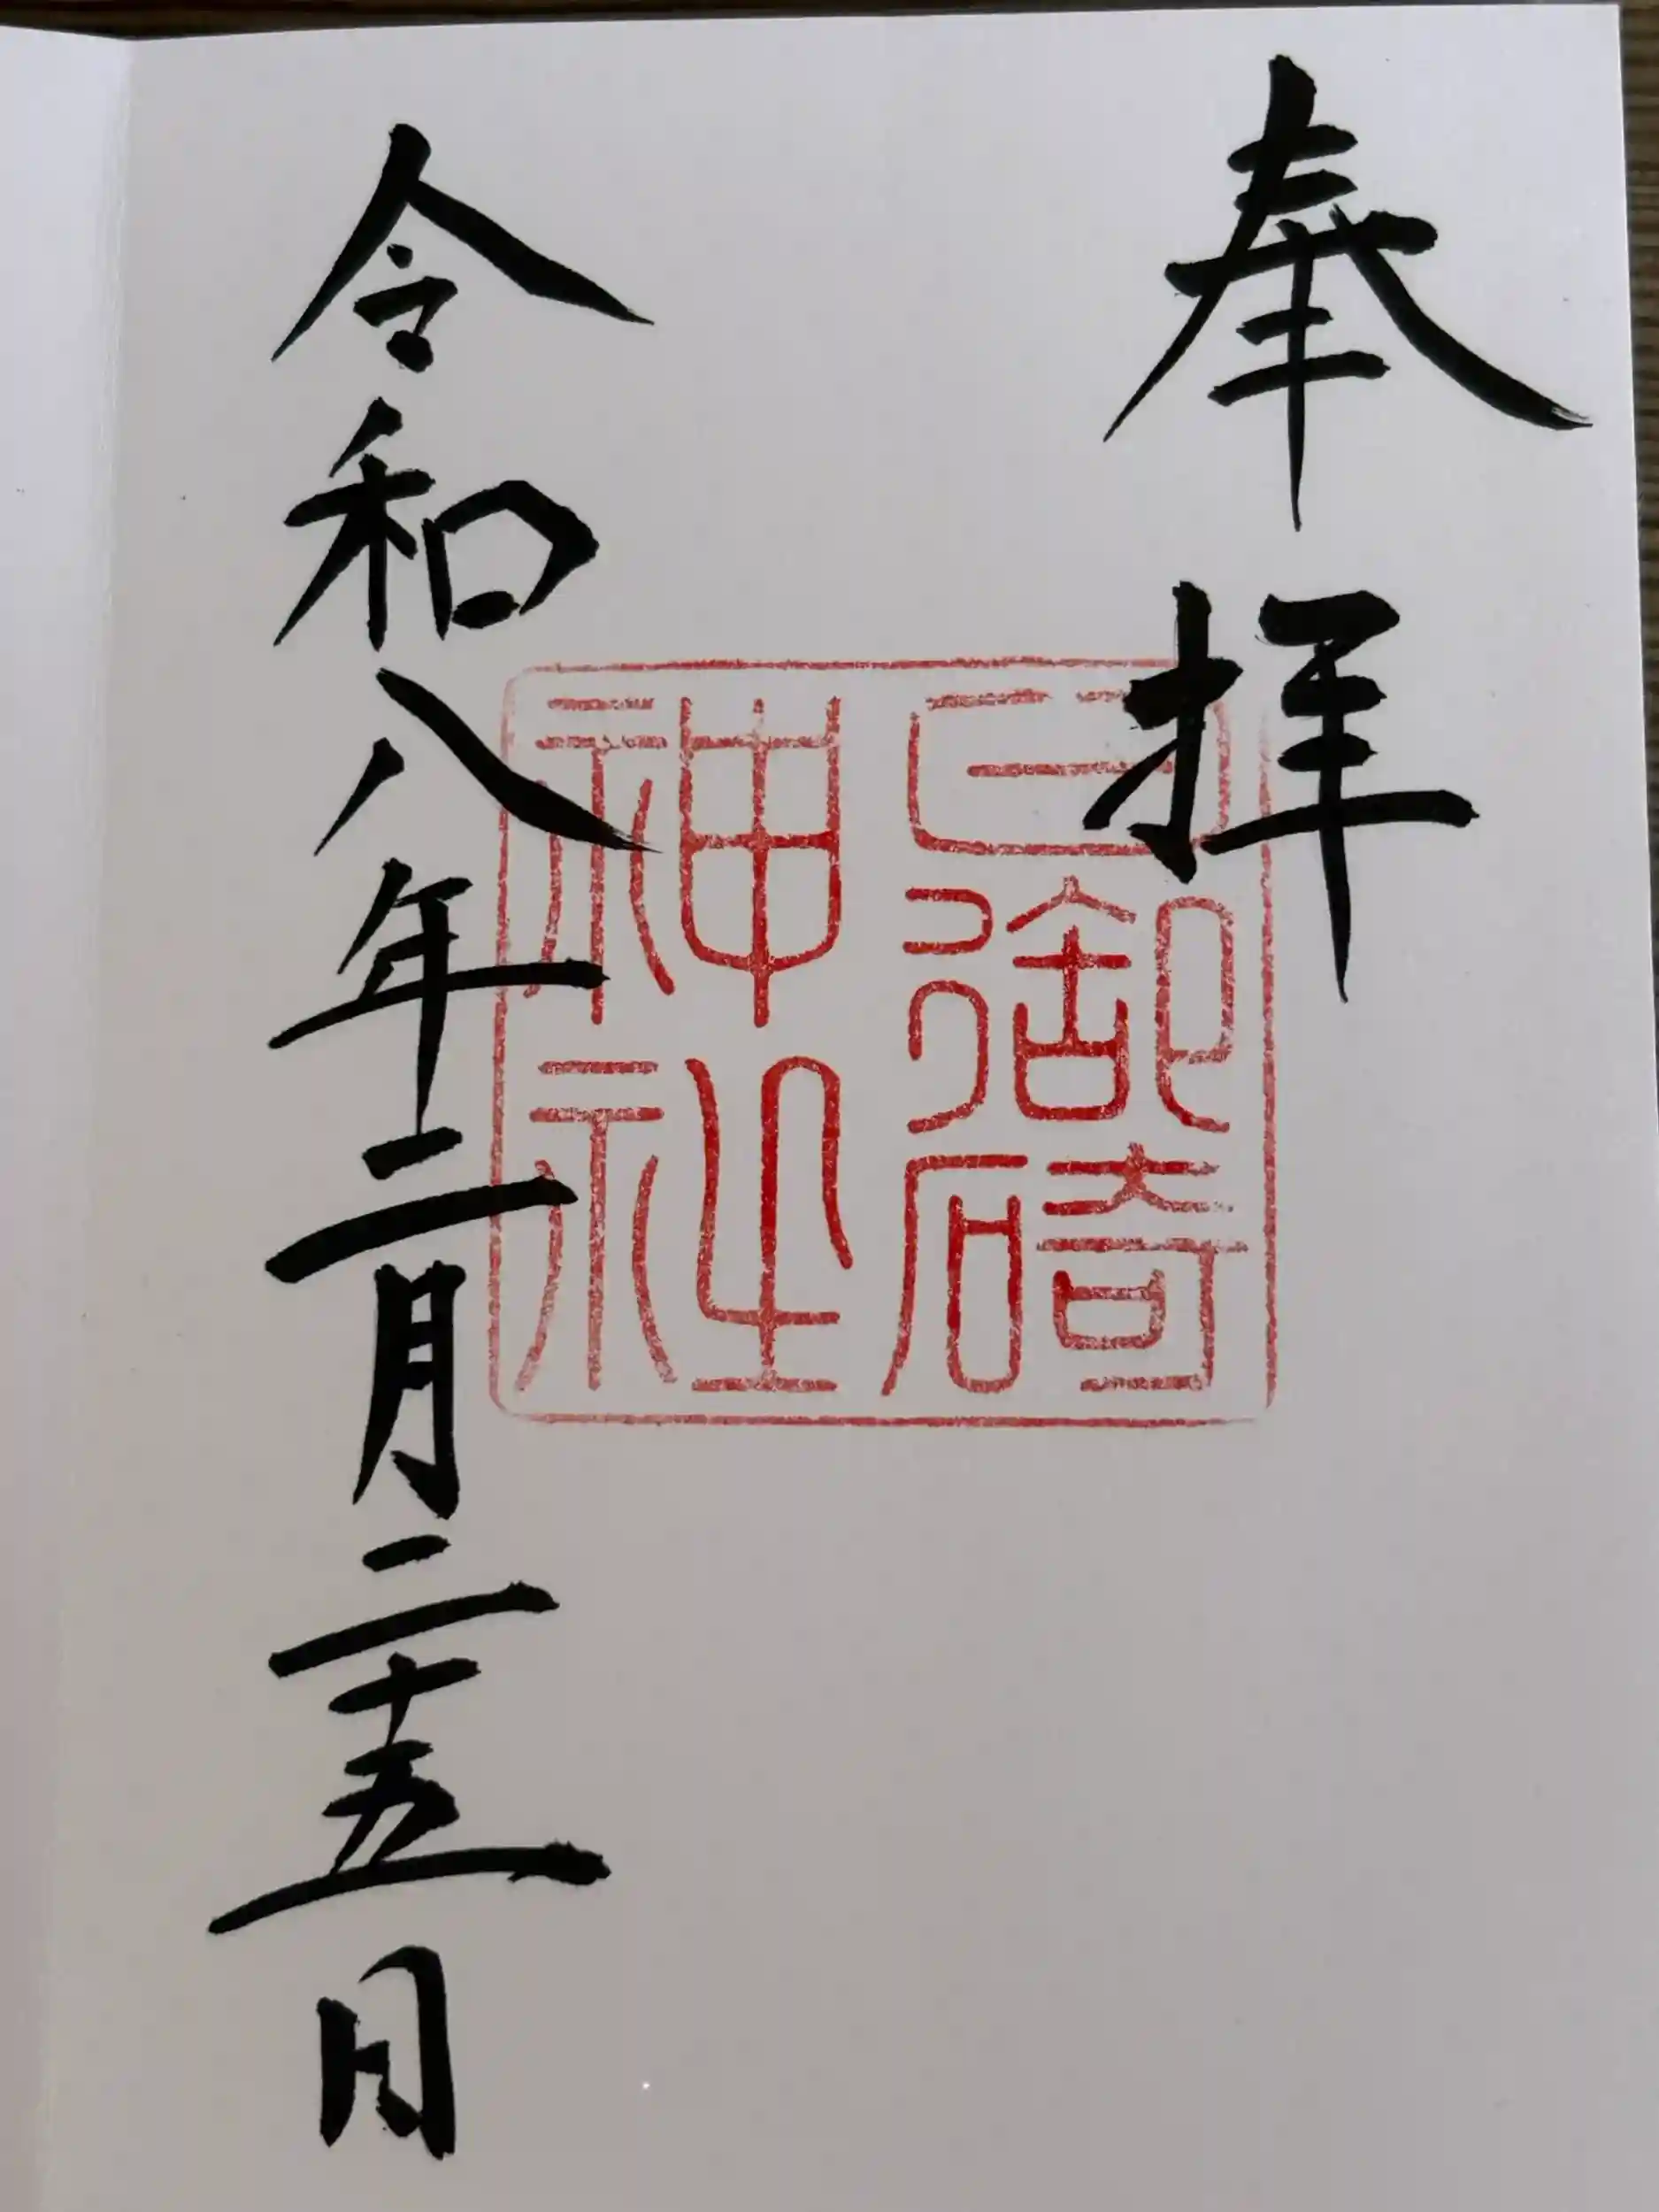 奉拝
日御碕神社
令和八年二月二十五日